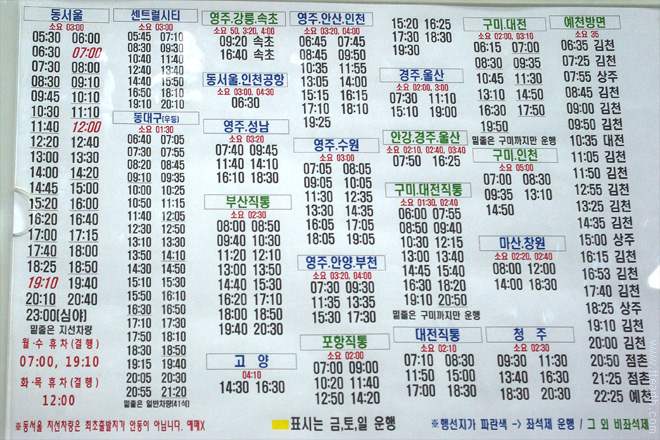 동서울
소요 03:00
05:30 06:00
06:30 07:00
07:30 08:00
08:30 09:10
09:45 10:10
10:30 11:10
11:40 12:00
12:20 12:40
13:00 13:30
14:00 14:20
14:45 15:00
15:20 15:45
16:20 16:40
17:00 17:15
17:40 18:00
18:25 18:50
19:10 19:40
20:10 20:40
23:00(심야)
밑줄은 지선차량
월·수 휴차(결행)
07:00, 19:10
화·목 휴차(결행)
12:00
센트럴시티
소요 03:00
05:45 07:10
08:30 09:30
10:40 11:40
12:40 13:40
14:40 15:50
16:50 18:10
19:10 20:10
동대구(우등)
소요 01:30
06:40 07:05
07:30 07:55
08:20 08:45
09:10 09:35
10:00 10:25
10:50 11:15
11:40 12:05
12:30 12:50
13:10 13:30
13:50 14:10
14:30 14:50
15:10 15:30
15:50 16:10
16:30 16:50
17:10 17:30
17:50 18:10
18:30 18:50
19:15 19:40
20:05 20:30
20:55 21:20
밑줄은 일반차량(41석)
영주,강릉,속초
소요 50, 3:20, 4:00
09:20 속초
16:40 속초
동서울.인천공항
소요 03:00, 04:30
06:30
영주.성남
소요 03:20
07:40 09:45
11:40 14:10
16:10 18:30
부산직통
소요 02:30
08:00 08:50
09:40 10:30
11:00 11:30
12:10 12:50
13:30 14:10
14:50 15:30
16:10 16:50
17:30 18:10
18:50 19:00
19:40 20:30
고 양
04:10
14:30 16:30
영주,안산,인천
소요 03:20, 04:00
06:45 07:45
09:00 09:45
10:35 11:55
13:05 14:00
15:15 16:15
17:10 18:10
19:25
영주.수원
소요 03:00
07:05 08:05
09:05 10:05
11:05 12:30
13:30 14:35
15:35 17:05
18:05 19:05
영주.안양.부천
소요 03:20, 04:00
07:30 09:30
11:35 13:35
15:30 17:30
포항직통
소요 02:00
07:00 09:00
10:20 11:40
12:50 14:20
15:20 16:25
17:30 18:30
19:30
경주.울산
소요 02:00, 3:00
07:30 11:10
15:10 19:00
안강.경주.울산
소요 02:10, 02:40, 03:40
07:50 16:25
구미.대전직통
소요 01:30, 02:40
06:00 07:55
08:50 09:40
10:30 12:15
13:10 14:00
14:45 15:40
16:30 17:20
18:10 18:40
19:50 20:50
밑줄은 구미까지만 운행
대전직통
소요 02:10
07:10 08:30
11:50 15:00
13:40 16:20
17:40 19:00
구미.대전
소요 02:00, 03:10
06:15 07:00
08:30 09:35
10:45 11:30
13:30 14:30
16:30 17:50
19:50
밑줄은 구미까지만 운행
구미.인천
소요 05:00
07:00 08:30
09:35 13:10
14:50
마산.창원
소요 02:20, 02:40
08:00 12:00
14:00 18:30
청 주
소요 02:30
09:30 11:30
14:00 16:00
17:30 18:40
예천방면
소요 35
06:35 김천
07:25 김천
07:55 상주
08:45 김천
09:00 김천
09:50 김천
10:35 대전
11:05 김천
11:50 김천
12:55 김천
13:25 김천
14:35 김천
15:00 상주
16:15 김천
16:53 김천
17:40 김천
18:25 상주
19:10 김천
20:00 김천
20:50 점촌
21:35 점촌
22:25 예천
※동서울 지선차량은 최초출발지가 안동이 아닙니다. 예매X
표시는 금,토,일 운행
※행선지가 파란색 -> 좌석제 운행 / 그 외 비좌석제